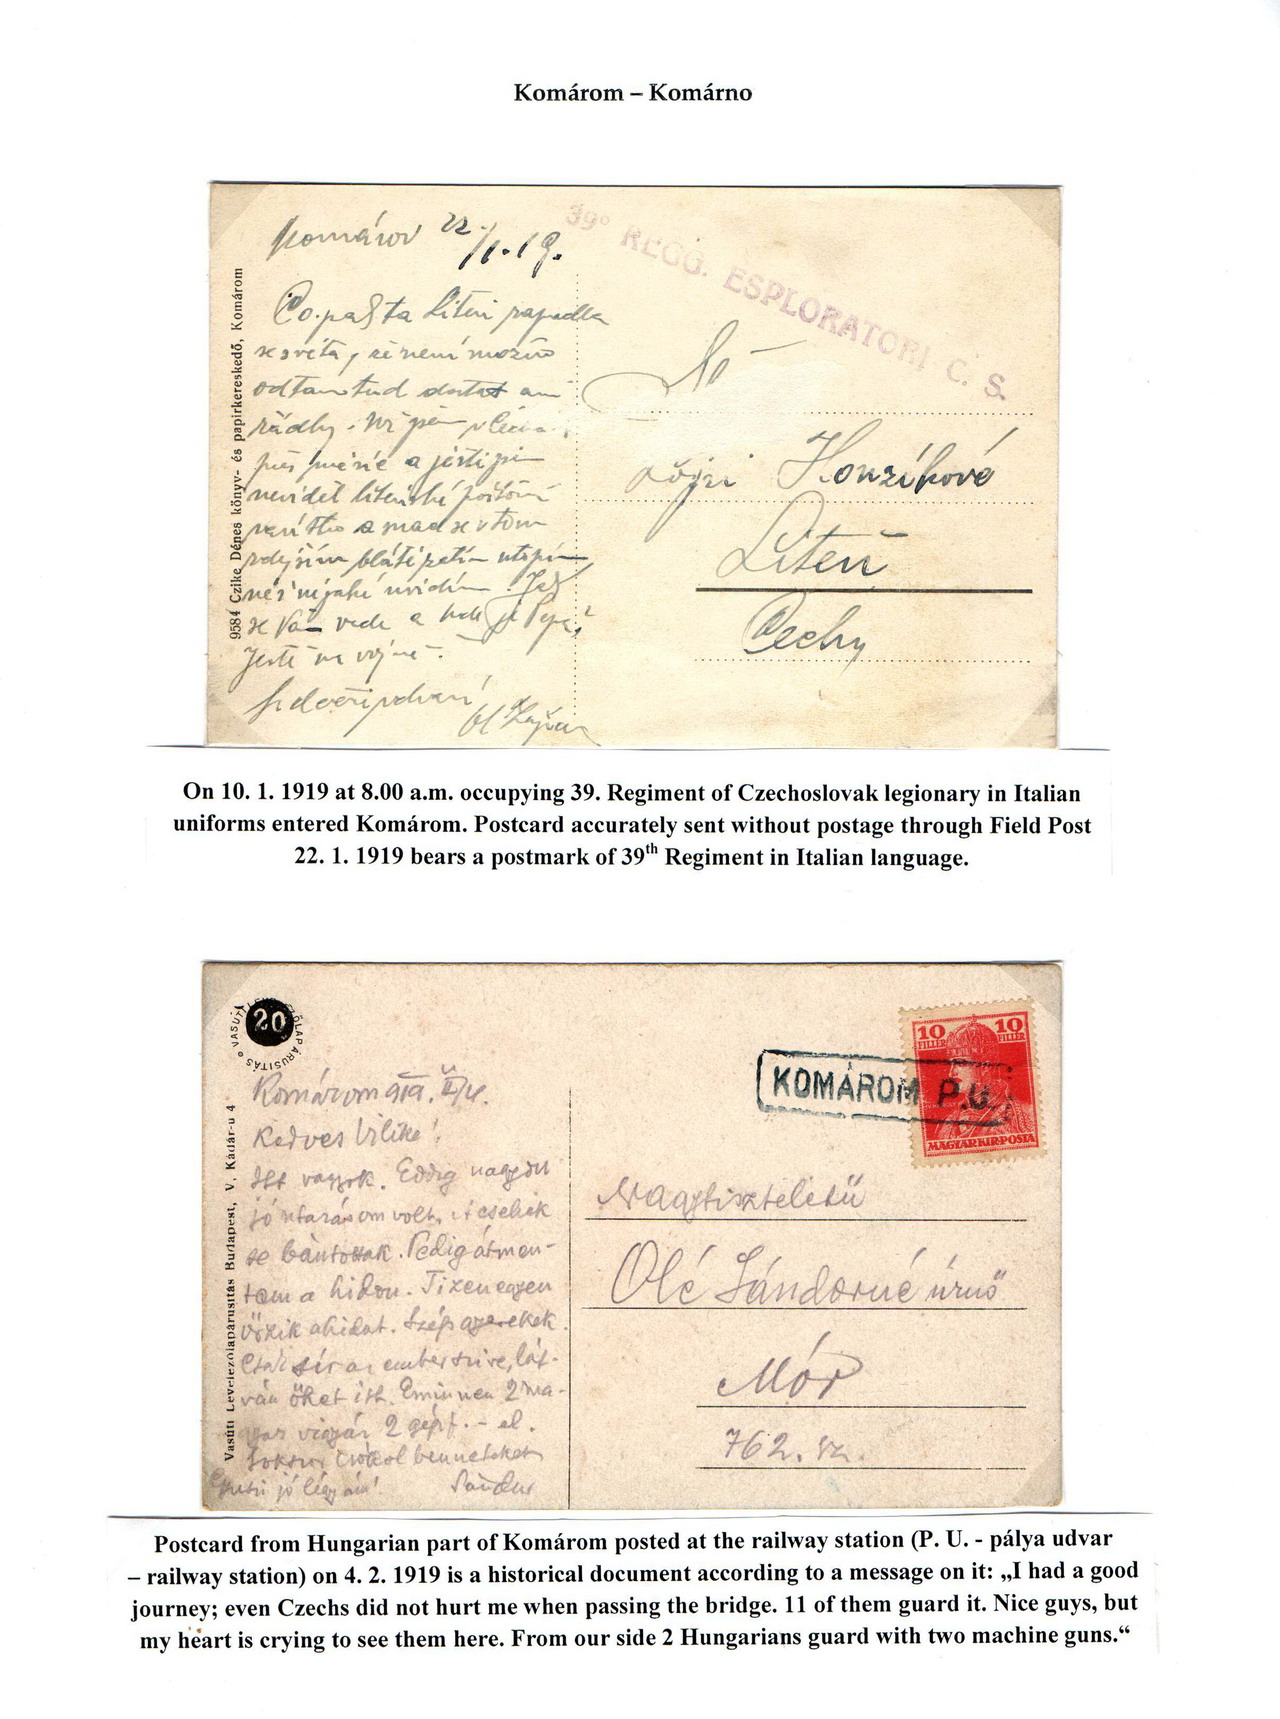 Komárom – Komárno
39º REGG. ESPLORATORI C. S.
Komárov 22./1.19.
Co pak ta Liteň zapadla
se světa, že není možno
odtamtud dostat ani
řádky.
měsíc a ještě
neviděl liteňské poštovní
a
se Vám vede a kde je Pepa?
Ještě na vojně?
Srdečně zdraví
Sl.
Honzíkové
Liteň
Čechy
9584 Czike Dénes könyv- és papirkereskedő, Komárom
On 10. 1. 1919 at 8.00 a.m. occupying 39. Regiment of Czechoslovak legionary in Italian
uniforms entered Komárom. Postcard accurately sent without postage through Field Post
22. 1. 1919 bears a postmark of 39th Regiment in Italian language.
20
10 FILLÉR 10 FILLÉR
MAGYAR KIR. POSTA
KOMÁROM P.U.
Komárom 919. II/4.
Kedves Vilike!
Itt vagyok. Eddig nagyon
jó utazásom volt, a csehek
se bántottak. Pedig átmen-
tem a hidon. Tizenegyen
őrzik a hidat. Szép gyerekek.
Csak sír az ember szive, lát-
ván őket itt. Eminnen 2 ma-
gyar vigyáz 2 gépf.-el.
Sokszor csókol benneteket
jó légy ám! Sándor
Nagytiszteletű
Olé Sándorné úrnő
Mór
762. sz.
Vasúti Levelezőlapárusitás Budapest, V. Kádár-u 4
Postcard from Hungarian part of Komárom posted at the railway station (P. U. - pálya udvar
– railway station) on 4. 2. 1919 is a historical document according to a message on it: „I had a good
journey; even Czechs did not hurt me when passing the bridge. 11 of them guard it. Nice guys, but
my heart is crying to see them here. From our side 2 Hungarians guard with two machine guns.“